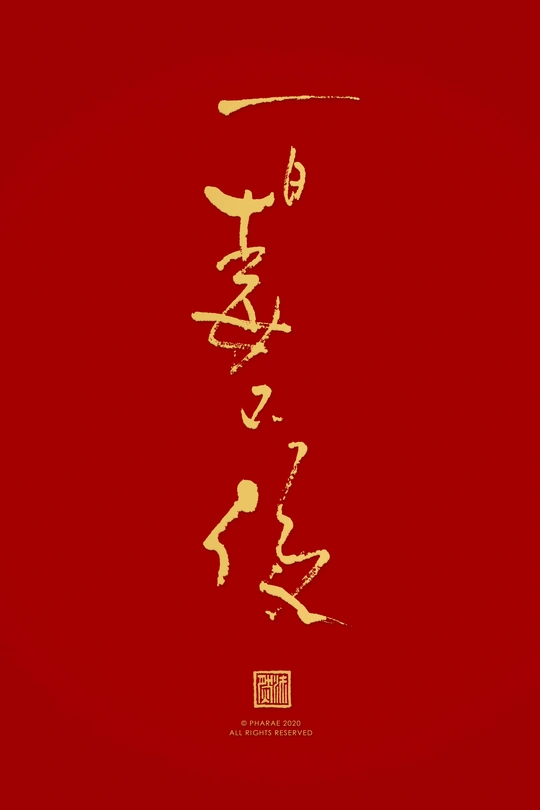 百毒不侵
© PHARAE 2020
ALL RIGHTS RESERVED